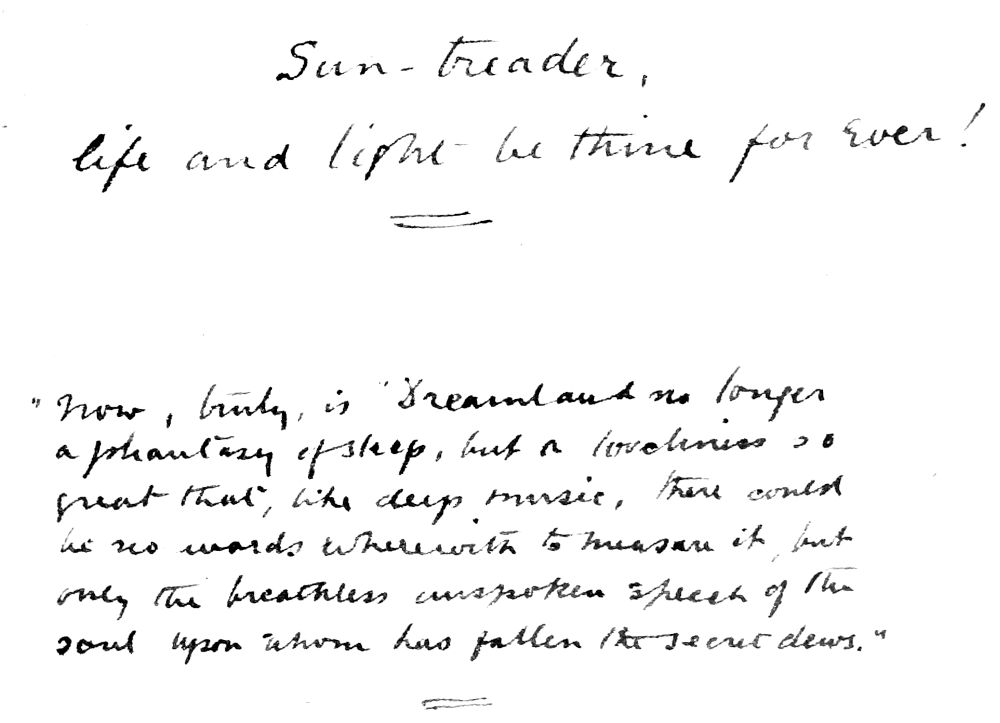 Sun-treader,
life and light be thine for ever!
"Now, truly, is Dreamland no longer
a phantasy of sleep, but a loveliness so
great that, like deep music, there could
be no words wherewith to measure it, but
only the breathless unspoken speech of the
soul upon whom has fallen the secret dews."